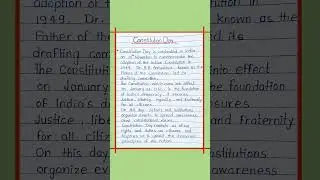 Constitution Day
Constitution Day is celebrated in India
on 26th November to commemorate the
adoption of the Indian Constitution in
1949. Dr. B.R. Ambedkar, known as the
Father of the Constitution, led its
drafting committee.
The Constitution which came into effect
on January 26, 1950, is the foundation
of India's democracy. It ensures
Justice, liberty, equality, and fraternity
for all citizens.
On this day, schools and institutions
organize events to spread awareness
about constitutional values.
Constitution Day reminds us of our
rights and duties as citizens and
inspires us to uphold the democratic
principles of the nation.
adoption of t
1949. Dr.
Father of the
drafting com
The Constitut
on January
of India's d
Justice, lib
for all citize
On this day
organize ev
n in
known as the
its
into effect
the foundation
ensures
and fraternity
nstitutions
awareness